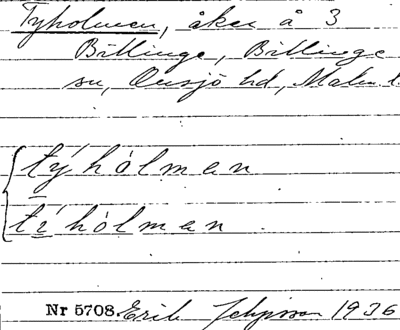 Tyholmen, åker å 3
Billinge, Billinge
sn, Onsjö hd, Malm. l.
týhòlman
tíhòlman
Nr 5708 Erik 1936